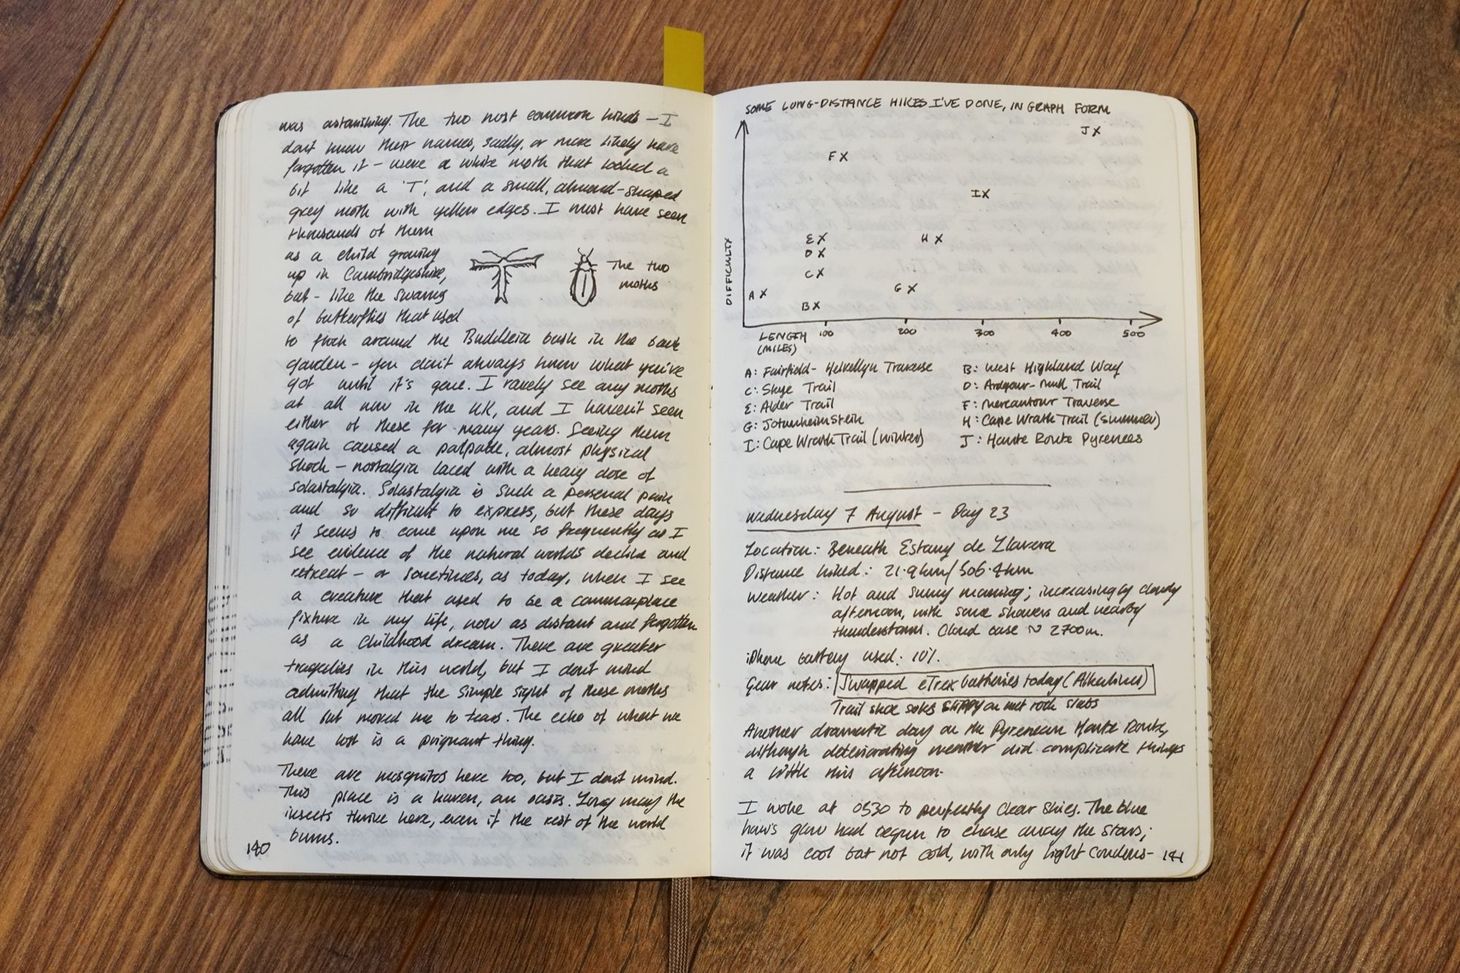 was astonishing. The two most common kinds – I
don't know their names, sadly, or more likely have
forgotten it – were a white moth that looked a
bit like a 'T', and a small, almond-shaped
grey moth with yellow edges. I must have seen
thousands of them
as a child growing
up in Cambridgeshire,
but – like the swarms
of butterflies that used
The two
moths
to flock around the Buddleia bush in the back
garden – you don't always know what you've
got until it's gone. I rarely see any moths
at all now in the UK, and I haven't seen
either of these for many years. Seeing them
again caused a palpable, almost physical
shock – nostalgia laced with a heavy dose of
solastalgia. Solastalgia is such a personal pain
and so difficult to express, but these days
it seems to come upon me so frequently as I
see evidence of the natural world's decline and
retreat – or sometimes, as today, when I see
a creature that used to be a commonplace
fixture in my life, now as distant and forgotten
as a childhood dream. There are greater
tragedies in this world, but I don't mind
admitting that the simple sight of these moths
all but moved me to tears. The echo of what we
have lost is a poignant thing.
There are mosquitos here too, but I don't mind.
This place is a haven, an oasis. Long may the
insects thrive here, even if the rest of the world
burns.
140
SOME LONG-DISTANCE HIKES I'VE DONE, IN GRAPH FORM
J X
F X
I X
E X
H X
D X
C X
G X
A X
B X
DIFFICULTY
LENGTH (MILES)
100 200 300 400 500
A: Fairfield-Helvellyn Traverse
B: West Highland Way
C: Skye Trail
D: Ardgour-Mull Trail
E: Alder Trail
F: Mercantour Traverse
G: Jotunheimstein
H: Cape Wrath Trail (summer)
I: Cape Wrath Trail (winter)
J: Haute Route Pyrenees
Wednesday 7 August – Day 23
Location: Beneath Estany de Llavera
Distance hiked: 21.9km/506.4km
Weather: Hot and sunny morning; increasingly cloudy
afternoon, with some showers and nearby
thunderstorms. Cloud base ~ 2700m.
iPhone battery used: 10%.
Gear notes: Swapped eTrex batteries today (Alkalines)
Trail shoe soles slippy on wet rock slabs
Another dramatic day on the Pyrenean Haute Route,
although deteriorating weather did complicate things
a little this afternoon.
I woke at 0530 to perfectly clear skies. The blue
hour's glow had begun to chase away the stars;
it was cool but not cold, with only light condens-
141